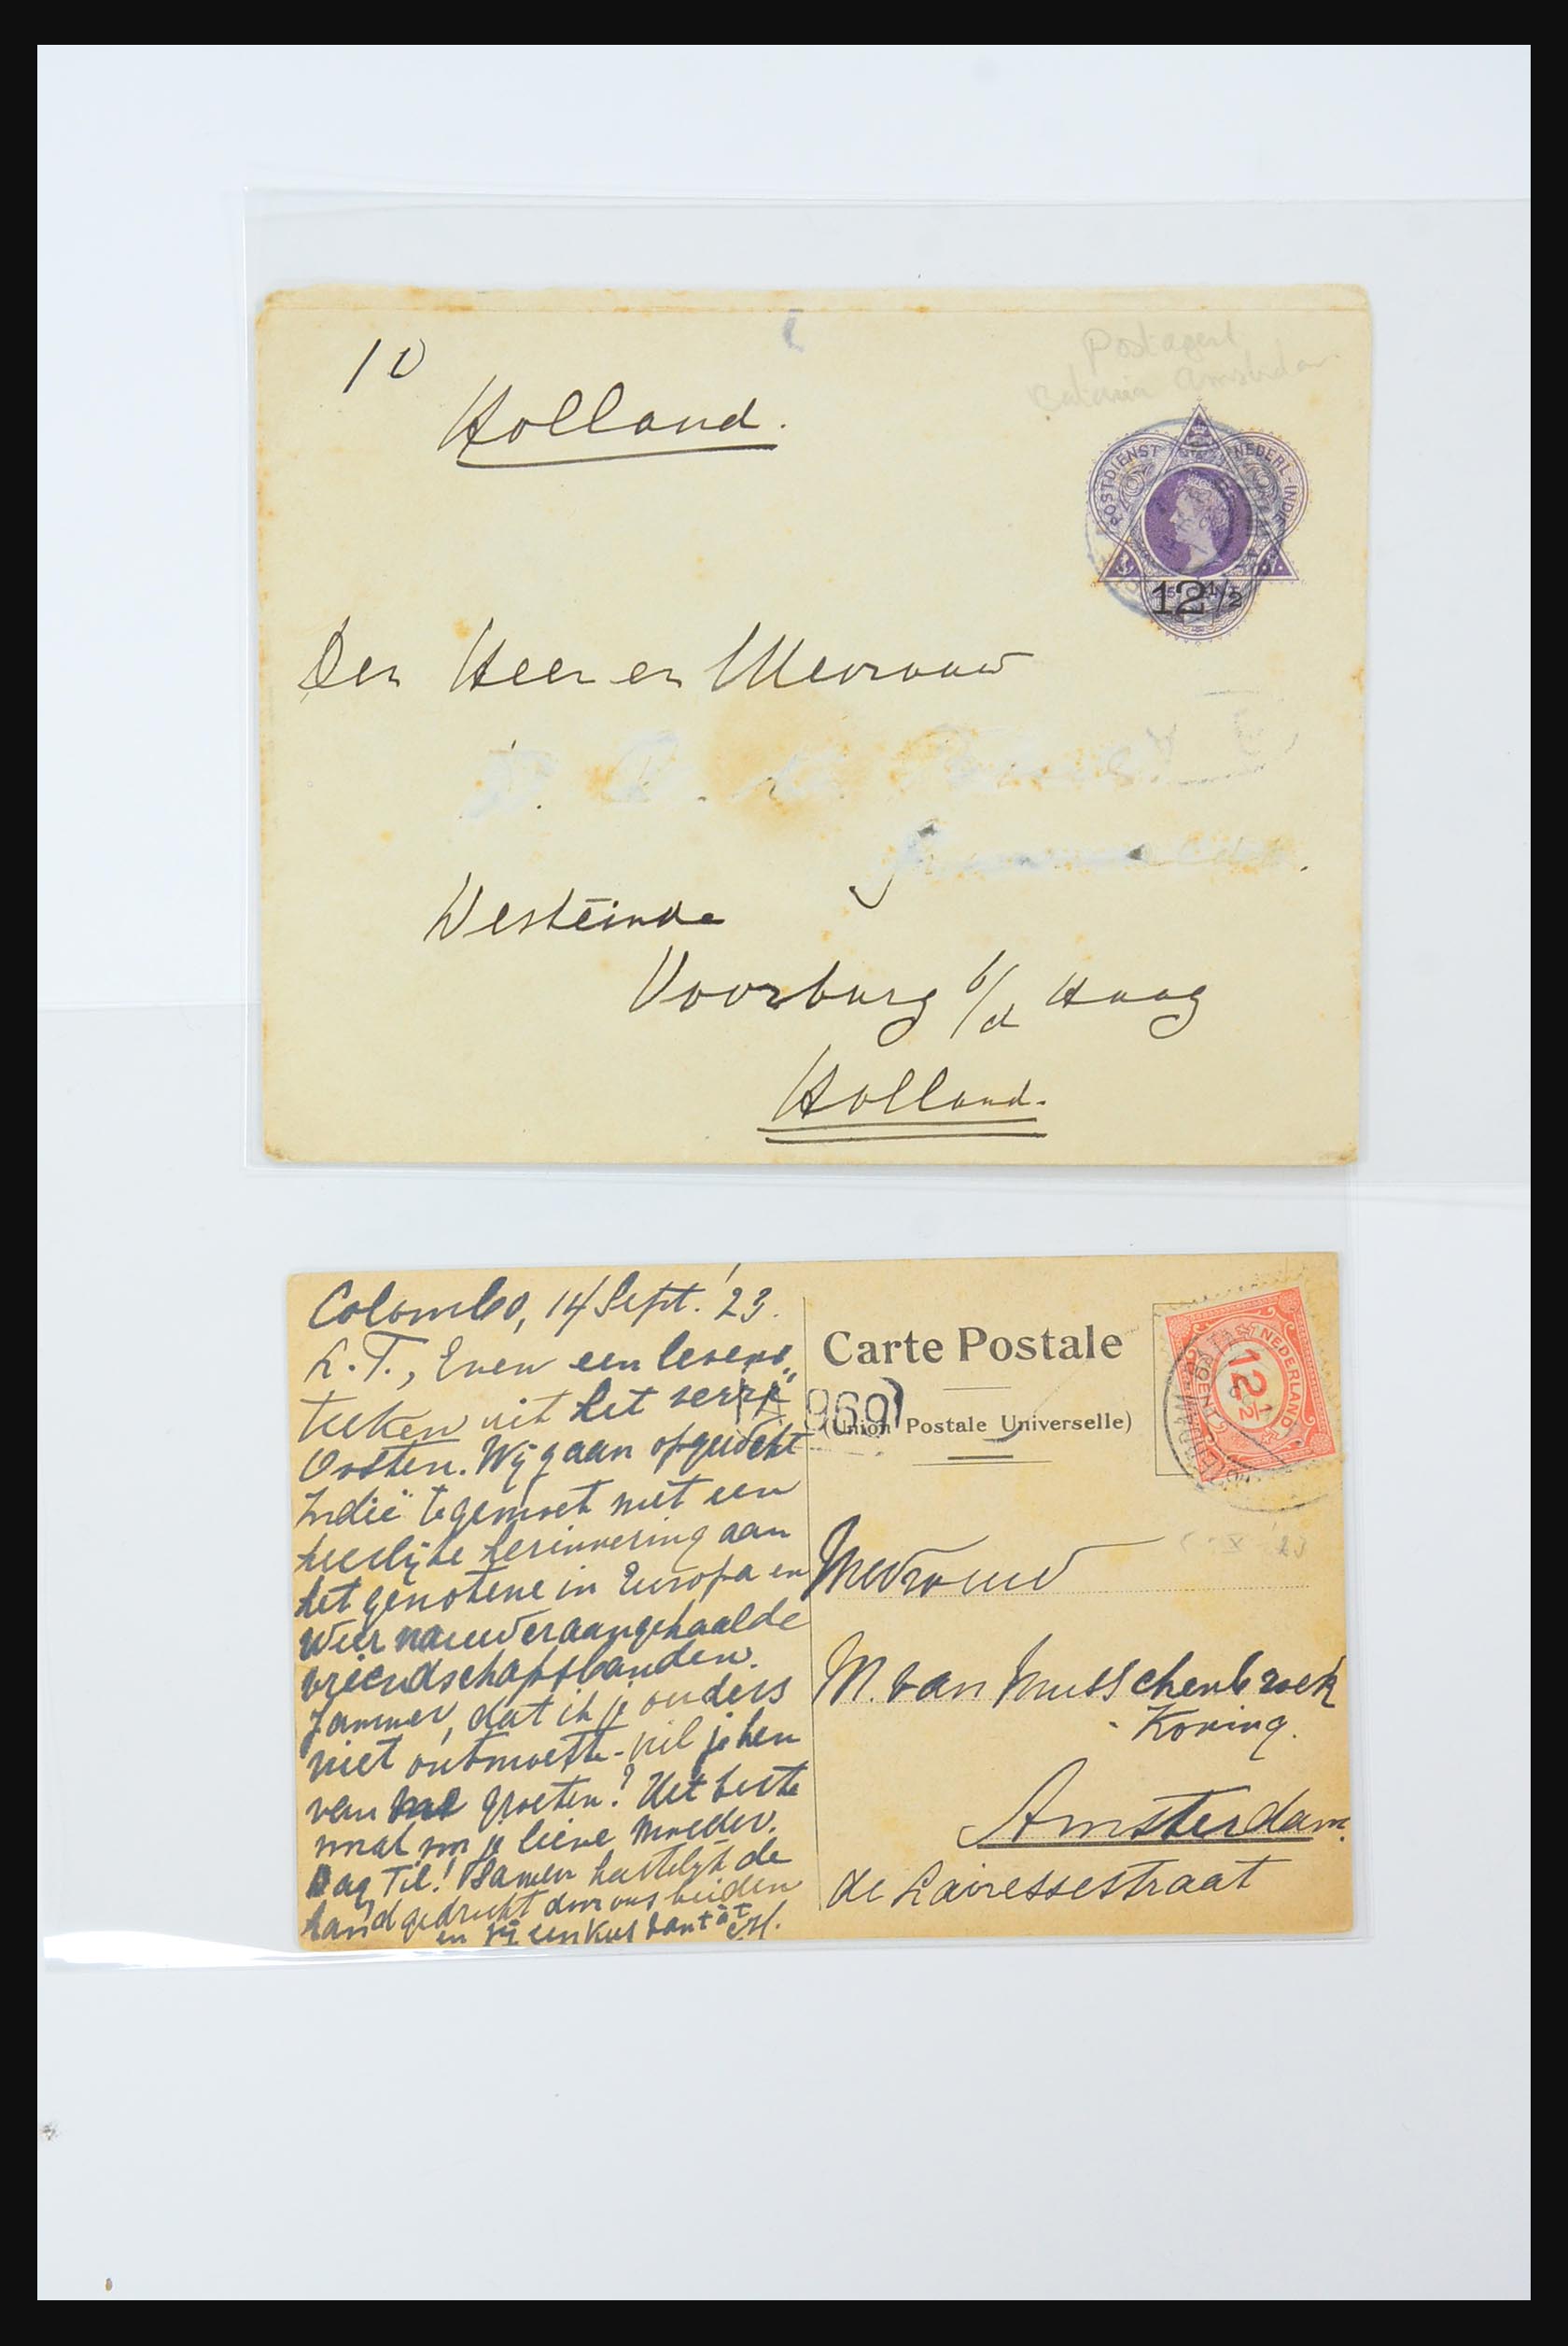 10
Holland.
Postagent
Batavia Amsterdam
POSTDIENST NEDERL-INDIE
12 1/2
Den Heer en Mevrouw
Westeinde
Voorburg b/d Haag
Holland.
Colombo, 14 Sept. '23.
L. T., Even een levens
teeken uit het verre
Oosten. Wij gaan opgewekt
Indië tegemoet met een
heerlijke herinnering aan
het genotene in Europa en
weer nauwer aangehaalde
vriendschapsbanden.
Jammer, dat ik je ouders
niet ontmoette - wil je hen
van me groeten? Het beste
met je lieve Moeder.
Dag Til! Samen hartelijk de
hand gedrukt door ons beiden
en een kus van
Carte Postale
(Union Postale Universelle)
969
NEDERLAND
12 1/2
CENT
X '23
Mevrouw
M. van Musschenbroek
- Koning.
Amsterdam.
de Lairessestraat